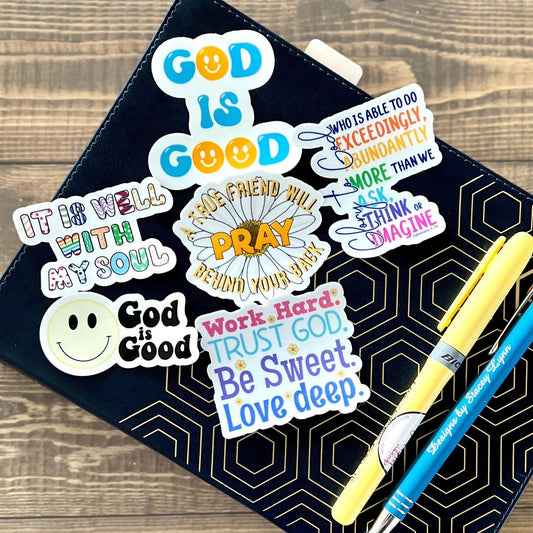 GOD
IS
GOOD
WHO IS ABLE TO DO
EXCEEDINGLY,
ABUNDANTLY
MORE THAN WE
ASK
THINK OR
IMAGINE
Glory to God
IT IS WELL
WITH
MY SOUL
A TRUE FRIEND WILL
PRAY
BEHIND YOUR BACK
God
is
Good
Work Hard.
TRUST GOD.
Be Sweet.
Love deep.
BIC
Designs by Stacey Lynn